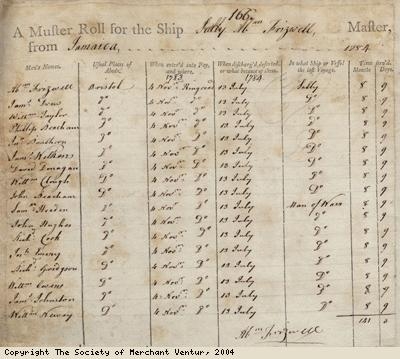 166
A Muster Roll for the Ship Sally Wm Frizwell, Master,
from Jamaica, 1784
Men's Names. Usual Places of Abode. When enter'd into Pay, and where. 1783 When discharg'd, deserted, or what became of them. 1784 In what Ship or Vessel the last Voyage. Time serv'd. Months Days.
Wm Frizwell Bristol 4 Novr 13 July Sally 8 9
Do 4 Novr Do 13 July Do 8 9
Willm Taylor Do 4 Novr Do 13 July Do 8 9
Do 4 Novr Do 13 July Do 8 9
Do 4 Novr Do 13 July Do 8 9
Do 4 Novr Do 13 July Do 8 9
David Do 4 Novr Do 13 July Do 8 9
Willm Clough Do 4 Novr Do 13 July Do 8 9
John Do 4 Novr Do 13 July Do 8 9
Saml Do 4 Novr Do 13 July Man of Warr 8 9
John Hughes Do 4 Novr Do 13 July Do 8 9
Richd Cork Do 4 Novr Do 13 July Do 8 9
Do 4 Novr Do 13 July Do 8 9
Richd Do 4 Novr Do 13 July Do 8 9
Willm Owens Do 4 Novr Do 13 July Do 8 9
Saml Johnston Do 4 Novr Do 13 July Do 8 9
Willm Do 4 Novr Do 13 July Do 8 9
141
Wm Frizwell
Copyright The Society of Merchant Ventur, 2004